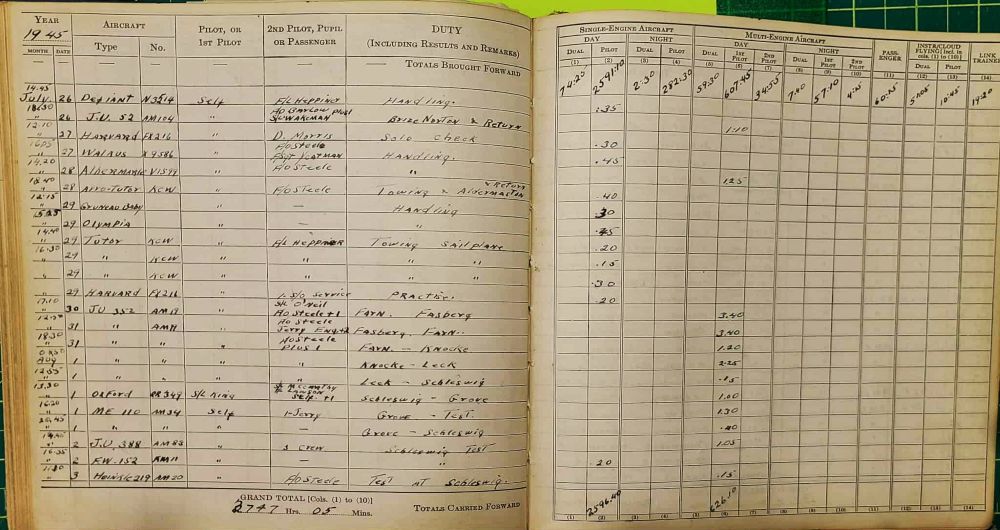 YEAR AIRCRAFT PILOT, OR 2ND PILOT, PUPIL DUTY SINGLE-ENGINE AIRCRAFT MULTI-ENGINE AIRCRAFT
1945 1ST PILOT OR PASSENGER (INCLUDING RESULTS AND REMARKS) DAY NIGHT DAY NIGHT PASS-ENGER INSTR/CLOUD FLYING [Incl. in cols. (1) to (10)] LINK TRAINER
MONTH DATE Type No. DUAL PILOT DUAL PILOT DUAL 1ST PILOT 2ND PILOT DUAL 1ST PILOT 2ND PILOT DUAL PILOT
(1) (2) (3) (4) (5) (6) (7) (8) (9) (10) (11) (12) (13) (14)
— — — — — TOTALS BROUGHT FORWARD 74.25 2591.10 2.30 282.30 59.30 607.45 34.55 7.40 57.10 10.45 19.20
14.45
July 26 Defiant N3214 Self F/L Heppiner Handling. .35
18.30 F/O Barlow plus 1
" 26 J.U. 52 AM104 " S/L Wakeman Brize Norton & Return 1.10
12.10
" 27 Harvard FX216 " D. Morris Solo Check .30
16.05 F/O Steele
" 27 Walrus X9586 " F/Sgt Yeatman Handling. .45
14.20 F/O Steele
" 28 Albermarle V1599 " 1.25
18.40 & Return
" 28 Avro-Tutor KCW " F/O Steele Towing & Aldermaston .40
12.15
" 29 Gruneau Baby — Handling .30
" 29 Olympia " — " .45
14.40
" 29 Tutor KCW " F/L Heppiner Towing Sailplane .20
16.30
" 29 " KCW " " " " .15
" 29 " KCW " " " " .30
" 29 Harvard FX216 " 1. S/O Service Practise. .20
17.10 S/L O'Neil
" 30 JU 352 AM19 " F/O Steele+1 Farn. Fasberg 3.40
F/O Steele
" 31 " AM19 " Jerry Fasberg. Farn. 3.40
18.30 F/O Steele
" 31 " " Plus 1 Farn. — Knocke 1.20
Aug 1 " " " " Knocke – Leck 2.25
12.55
" 1 " " " " Leck – Schleswig .15
13.30 S/L McCarthy
" 1 Oxford S/L King Self +1 Schleswig – Grove 1.00
16.20
" 1 ME 110 AM34 Self 1-Jerry Grove – Test. 1.30
20.45
" 1 " " " — Grove – Schleswig .40
" 2 J.U. 388 AM83 " 3 crew Schleswig Test 1.05
16.35
" 2 F.W. 152 AM11 " " .20
" 3 Heinkle 219 AM20 " F/O Steele Test at Schleswig. .15
GRAND TOTAL [Cols. (1) to (10)]
2747 Hrs. 05 Mins. TOTALS CARRIED FORWARD 2596.40 626.10
(1) (2) (3) (4) (5) (6) (7) (8) (9) (10) (11) (12) (13) (14)